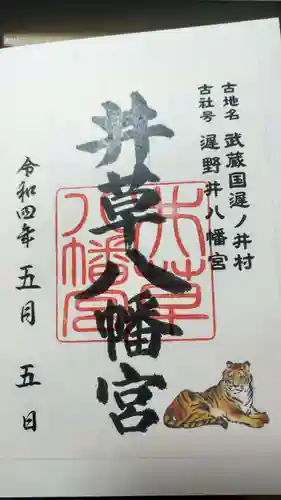 古地名 武蔵国遅ノ井村
古社号 遅野井八幡宮
井草八幡宮
井草八幡宮
令和四年五月五日